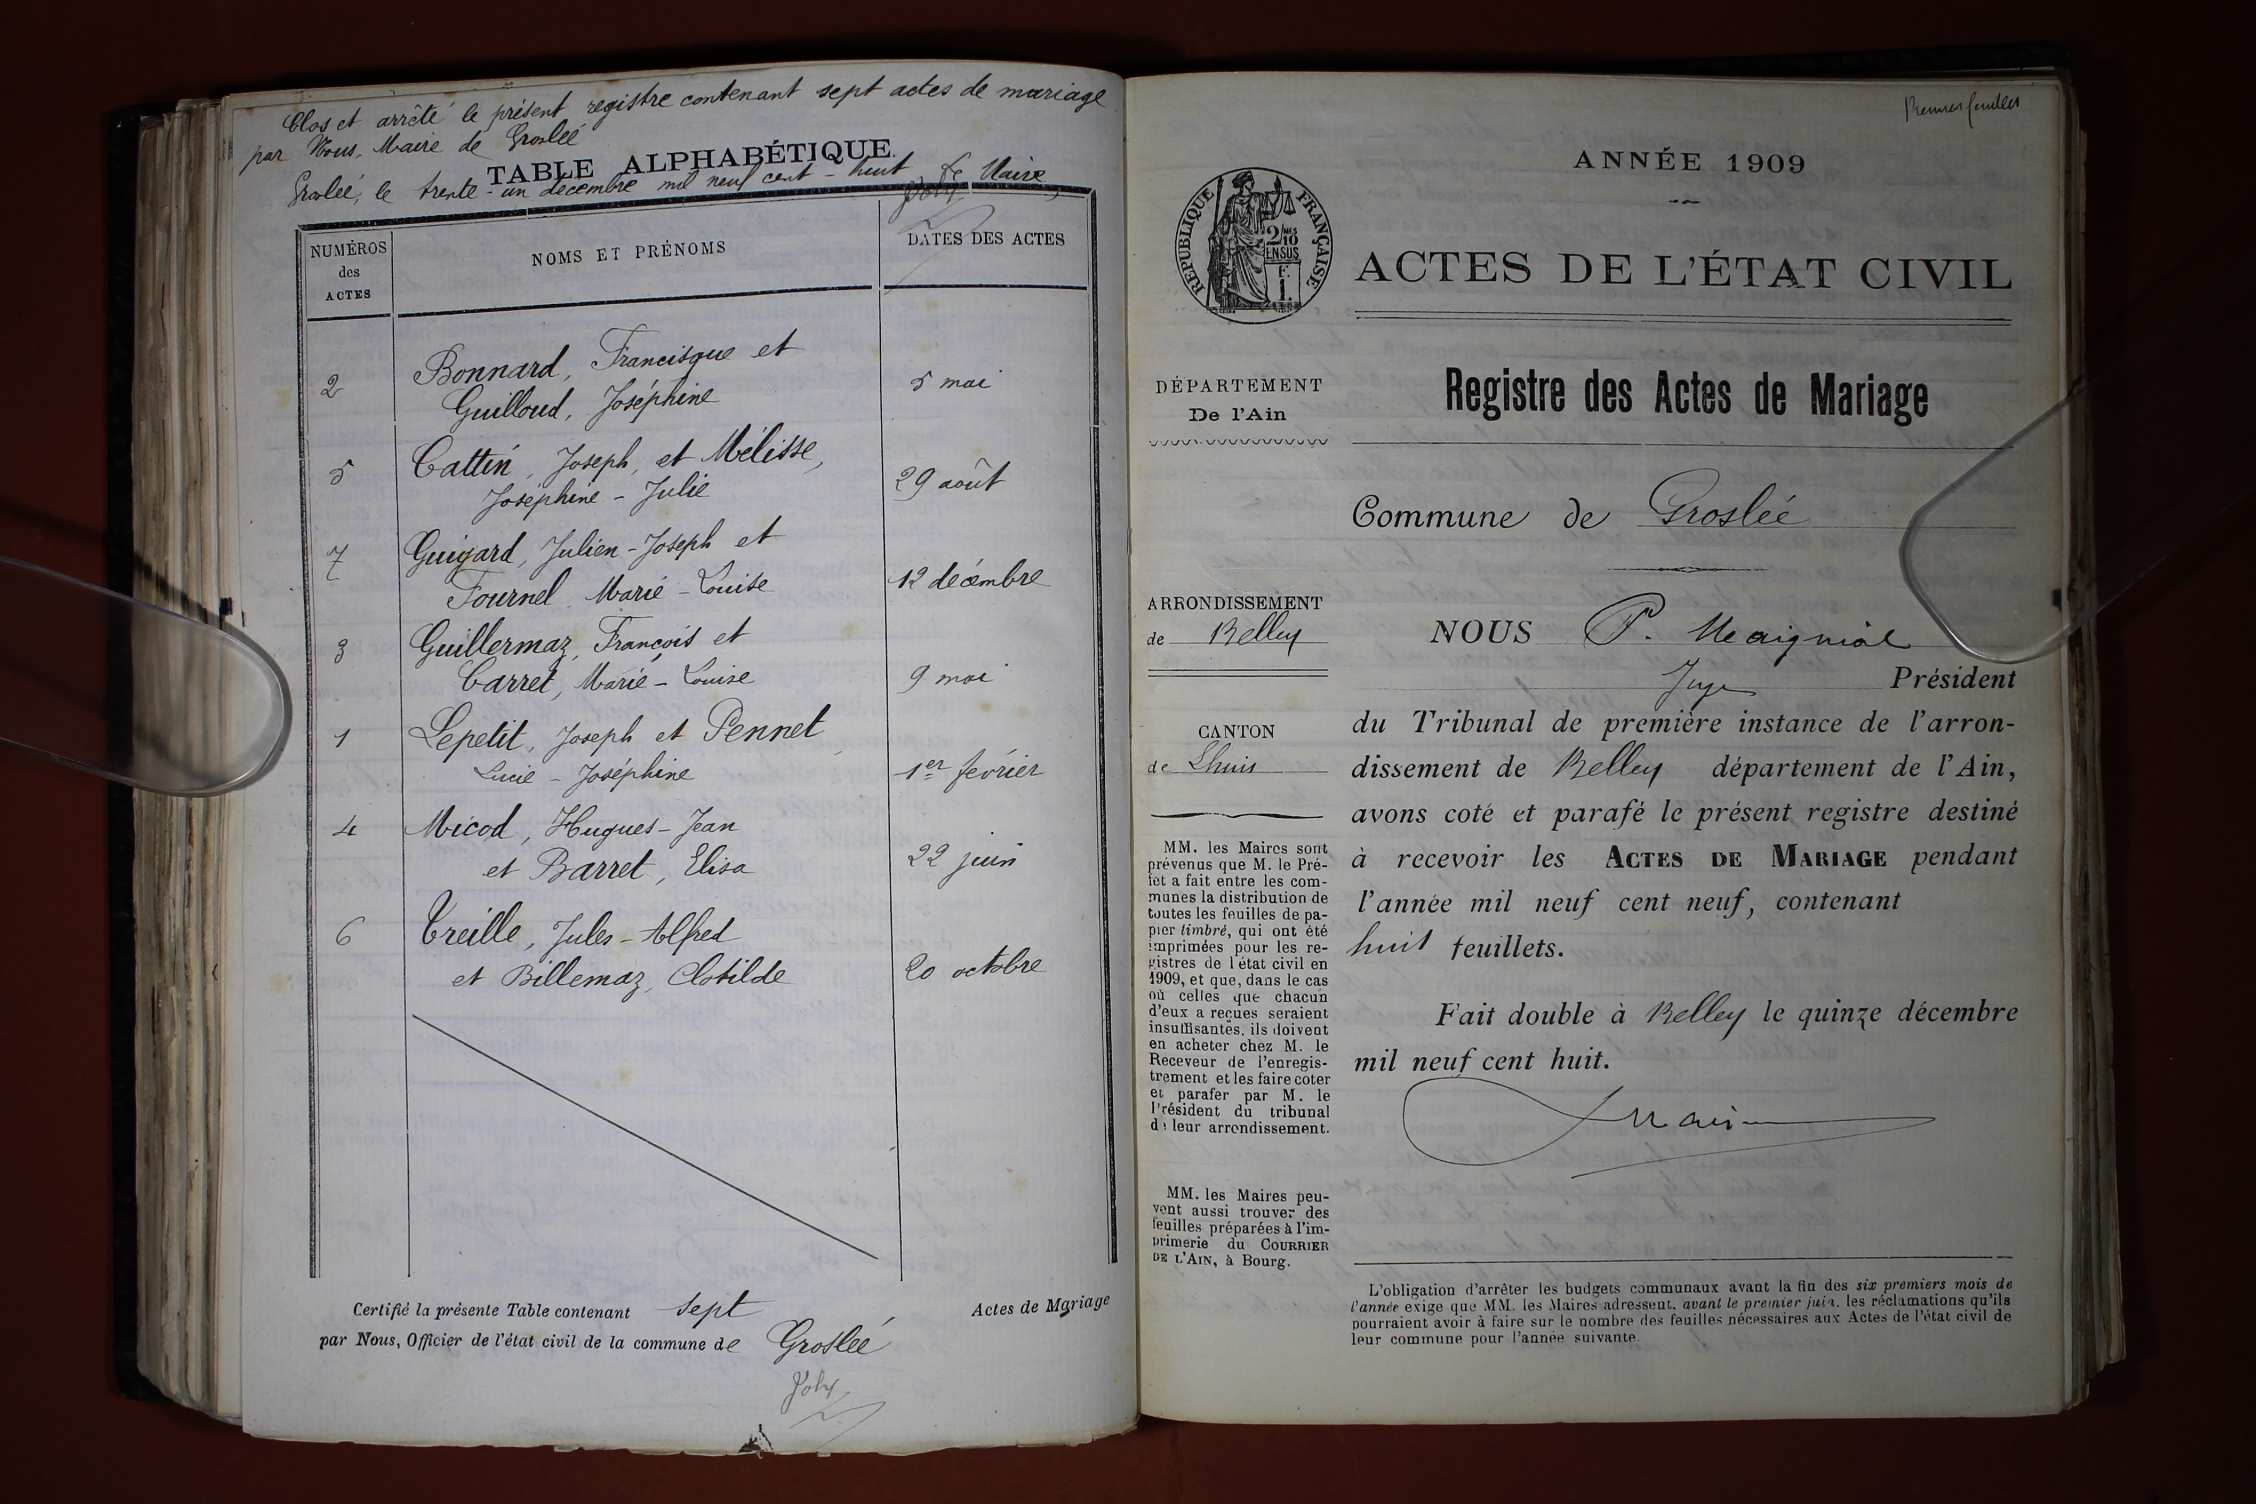 Clos et arrêté le présent registre contenant sept actes de mariage
par Nous, Maire de Groslée
TABLE ALPHABÉTIQUE
Groslée, le trente-un décembre mil neuf cent-huit Le Maire,
Joly
NUMÉROS des ACTES
NOMS ET PRÉNOMS
DATES DES ACTES
Bonnard, Francisque et
2 Guilloud, Joséphine 5 mai
5 Cattin, Joseph, et Mélisse,
Joséphine-Julie 29 août
7 Guigard, Julien-Joseph et
Tournel Marie-Louise 12 décembre
3 Guillermaz, François et
Carret, Marie-Louise 9 mai
1 Lepetit, Joseph et Pennet
Lucie-Joséphine 1er février
4 Micod, Hugues-Jean
et Barret, Elisa 22 juin
6 Treille, Jules-Alfred
et Billemaz, Clotilde 20 octobre
Certifié la présente Table contenant sept Actes de Mariage
par Nous, Officier de l'état civil de la commune de Groslée
Joly
Premier feuillet
ANNÉE 1909
RÉPUBLIQUE FRANÇAISE
2/10 EN SUS
ACTES DE L'ÉTAT CIVIL
DÉPARTEMENT
De l'Ain
ARRONDISSEMENT
de Belley
CANTON
de Lhuis
MM. les Maires sont
prévenus que M. le Pré-
fet a fait entre les com-
munes la distribution de
toutes les feuilles de pa-
pier timbré, qui ont été
imprimées pour les re-
gistres de l'état civil en
1909, et que, dans le cas
où celles que chacun
d'eux a reçues seraient
insuffisantes, ils doivent
en acheter chez M. le
Receveur de l'enregis-
trement et les faire coter
et parafer par M. le
Président du tribunal
de leur arrondissement.
MM. les Maires peu-
vent aussi trouver des
feuilles préparées à l'im-
primerie du COURRIER
DE L'AIN, à Bourg.
Registre des Actes de Mariage
Commune de Groslée
NOUS P. Maignial
Juge Président
du Tribunal de première instance de l'arron-
dissement de Belley département de l'Ain,
avons coté et parafé le présent registre destiné
à recevoir les ACTES DE MARIAGE pendant
l'année mil neuf cent neuf, contenant
huit feuillets.
Fait double à Belley le quinze décembre
mil neuf cent huit.
L'obligation d'arrêter les budgets communaux avant la fin des six premiers mois de
l'année exige que MM. les Maires adressent, avant le premier juin, les réclamations qu'ils
pourraient avoir à faire sur le nombre des feuilles nécessaires aux Actes de l'état civil de
leur commune pour l'année suivante.